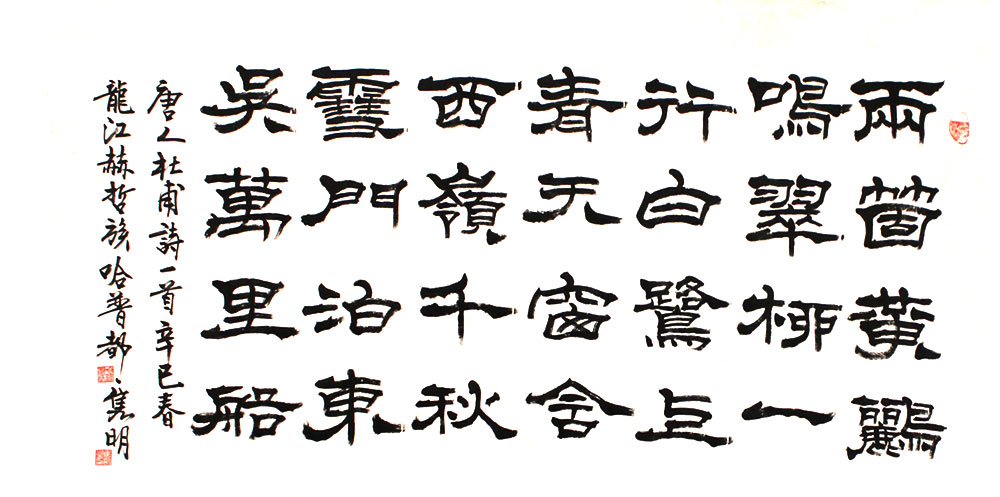 兩箇黃鸝
鳴翠柳一
行白鷺上
青天窗含
西嶺千秋
雪門泊東
吳萬里船
唐人杜甫詩一首辛巳春
龍江赫哲族哈普都、隽明